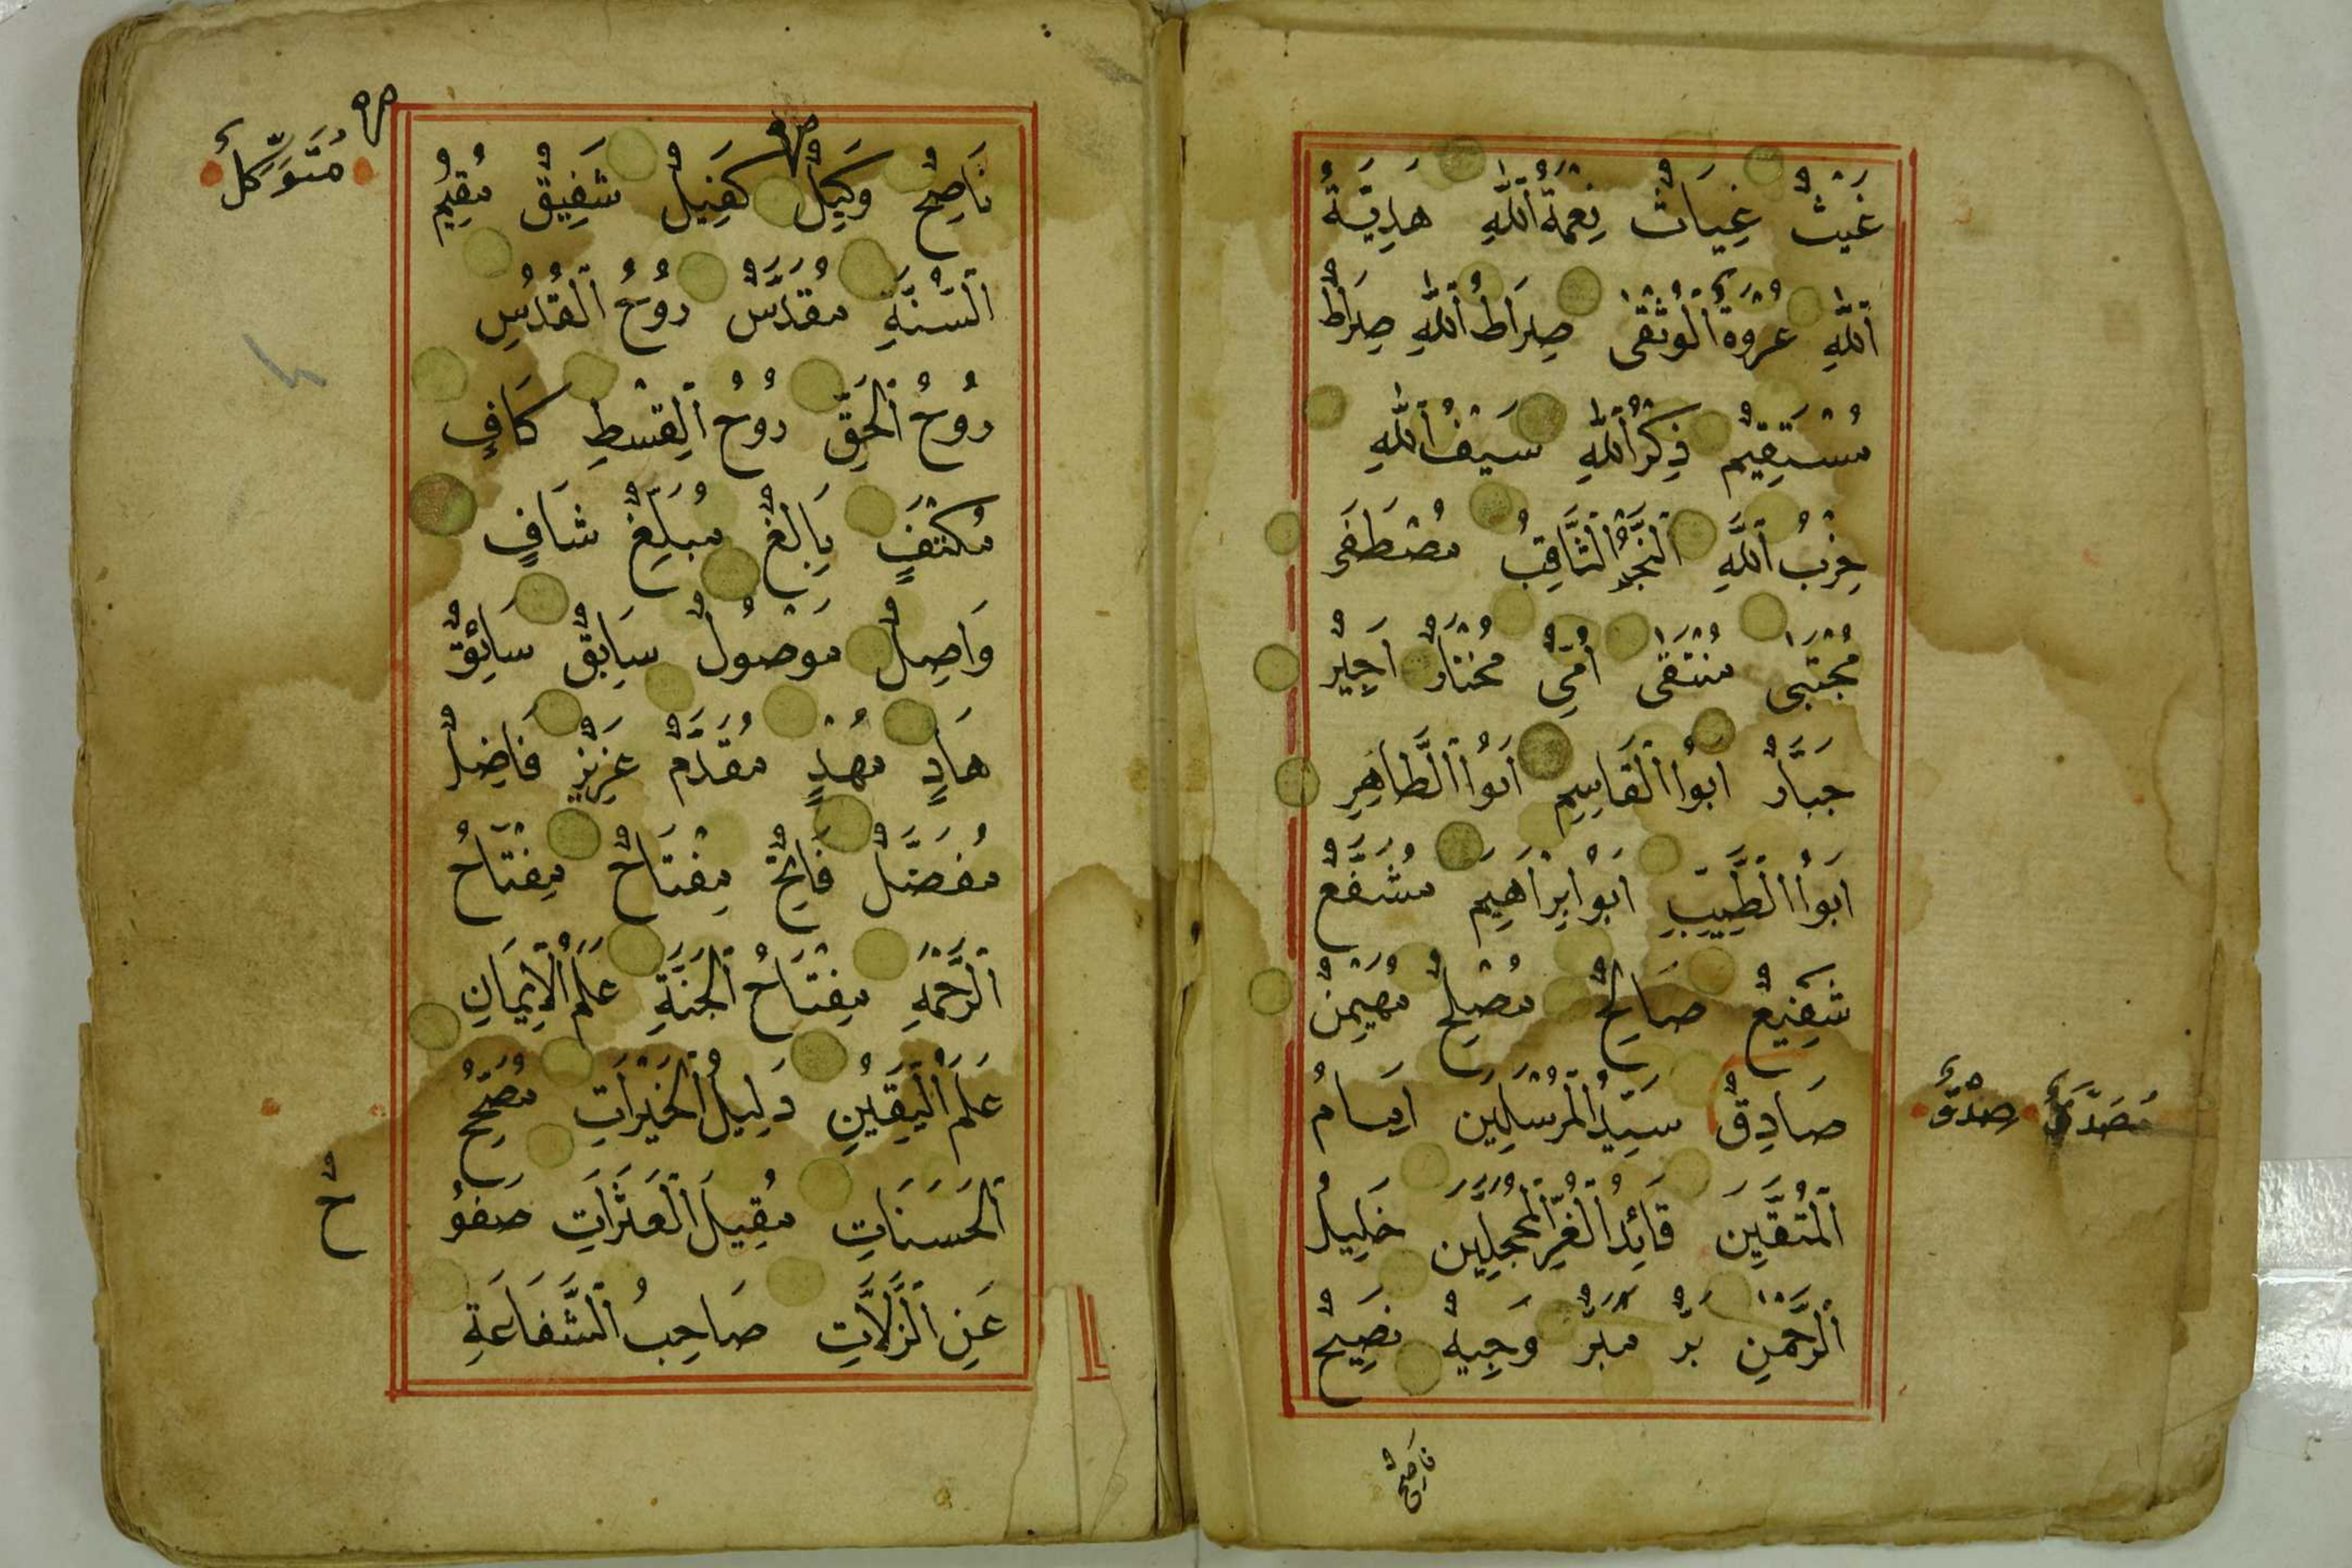 غَيْثٌ غِيَاثٌ نِعْمَةُ ٱللّٰهِ هَدِيَّةُ
ٱللّٰهِ عُرْوَةُ ٱلْوُثْقٰى صِرَاطُ ٱللّٰهِ صِرَاطٌ
مُسْتَقِيمٌ ذِكْرُ ٱللّٰهِ سَيْفُ ٱللّٰهِ
حِزْبُ ٱللّٰهِ ٱلنَّجْمُ ٱلثَّاقِبُ مُصْطَفَى
مُجْتَبٰى مُنْتَقٰى اُمِّيٌّ مُخْتَارٌ اَجِيْرٌ
جَبَّارٌ اَبُوا ٱلْقَاسِمِ اَبُوا ٱلطَّاهِرِ
اَبُوا ٱلطَّيِّبِ اَبُوْ اِبْرَاهِيمَ مُشَفَّعٌ
شَفِيْعٌ صَالِحٌ مُصْلِحٌ مُهَيْمِنٌ
مُصَدَّقٌ صِدْقٌ
صَادِقٌ سَيِّدُ ٱلْمُرْسَلِيْنَ اِمَامُ
ٱلْمُتَّقِيْنَ قَائِدُ ٱلْغُرِّ ٱلْمُحَجَّلِيْنَ خَلِيلُ
ٱلرَّحْمٰنِ بَرٌّ مَبَرٌّ وَجِيهٌ نَصِيحٌ
نَاصِحٌ
نَاصِحٌ وَكِيلٌ كَفِيلٌ شَفِيْقٌ مُقِيمُ
مُتَوَكِّلٌ
ٱلسُّنَّةِ مُقَدَّسٌ رُوْحُ ٱلْقُدُسِ
رُوْحُ ٱلْحَقِّ رُوْحُ ٱلْقِسْطِ كَافٍ
مُكْتَفٍ بَالِغٌ مُبَلِّغٌ شَافٍ
وَاصِلٌ مَوْصُولٌ سَابِقٌ سَائِقٌ
هَادٍ مُهْدٍ مُقَدَّمٌ عَزِيزٌ فَاضِلٌ
مُفَضَّلٌ فَاتِحٌ مِفْتَاحٌ مِفْتَاحُ
ٱلرَّحْمَةِ مِفْتَاحُ ٱلْجَنَّةِ عَلَمُ ٱلْاِيْمَانِ
عَلَمُ ٱلْيَقِيْنِ دَلِيلُ ٱلْخَيْرَاتِ مُصَحِّحُ
ٱلْحَسَنَاتِ مُقِيلَ ٱلْعَثَرَاتِ صَفُوْ
حٌ
عَنِ ٱلزَّلَّاتِ صَاحِبُ ٱلشَّفَاعَةِ